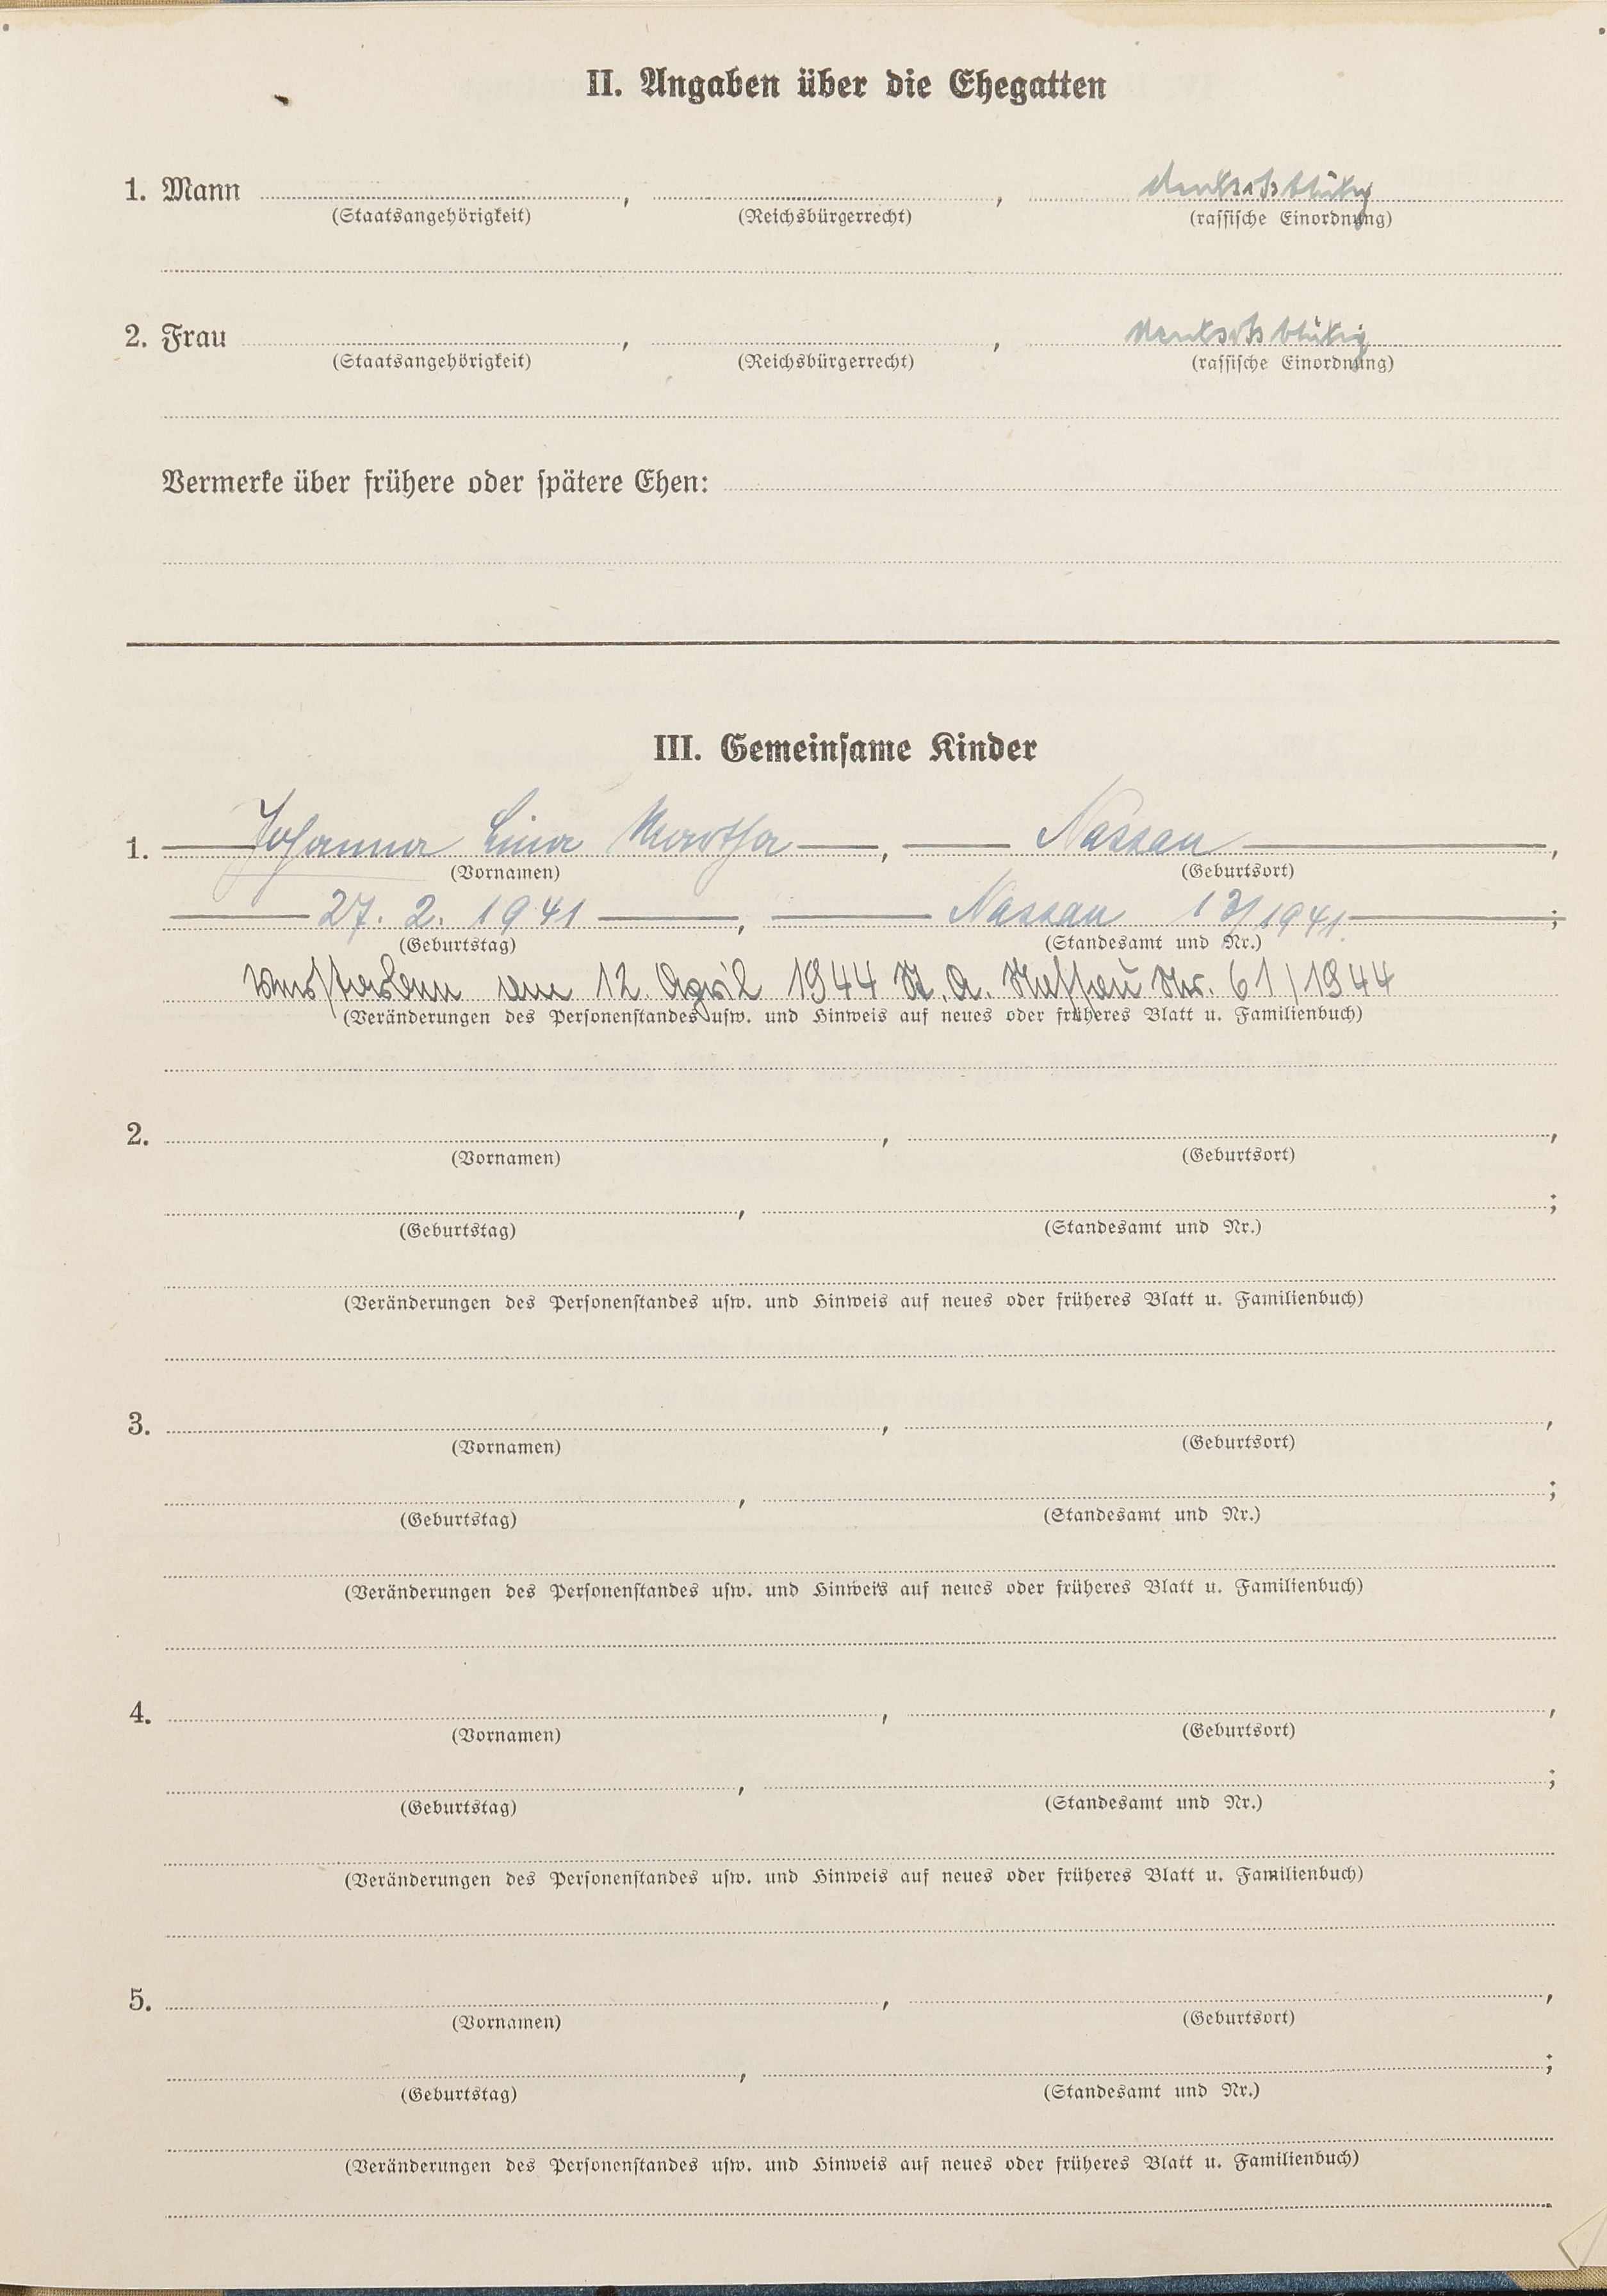 II. Angaben über die Ehegatten
1. Mann , , deutschblütig
(Staatsangehörigkeit) (Reichsbürgerrecht) (rassische Einordnung)
2. Frau , , deutschblütig
(Staatsangehörigkeit) (Reichsbürgerrecht) (rassische Einordnung)
Vermerke über frühere oder spätere Ehen:
III. Gemeinsame Kinder
1. Johanna Lina Martha , Nassau ,
(Vornamen) (Geburtsort)
27. 2. 1941 , Nassau 13/1941 ;
(Geburtstag) (Standesamt und Nr.)
verstorben am 12. April 1944 St. A. Nassau Nr. 61/1944
(Veränderungen des Personenstandes usw. und Hinweis auf neues oder früheres Blatt u. Familienbuch)
2. , ,
(Vornamen) (Geburtsort)
, ;
(Geburtstag) (Standesamt und Nr.)
(Veränderungen des Personenstandes usw. und Hinweis auf neues oder früheres Blatt u. Familienbuch)
3. , ,
(Vornamen) (Geburtsort)
, ;
(Geburtstag) (Standesamt und Nr.)
(Veränderungen des Personenstandes usw. und Hinweis auf neues oder früheres Blatt u. Familienbuch)
4. , ,
(Vornamen) (Geburtsort)
, ;
(Geburtstag) (Standesamt und Nr.)
(Veränderungen des Personenstandes usw. und Hinweis auf neues oder früheres Blatt u. Familienbuch)
5. , ,
(Vornamen) (Geburtsort)
, ;
(Geburtstag) (Standesamt und Nr.)
(Veränderungen des Personenstandes usw. und Hinweis auf neues oder früheres Blatt u. Familienbuch)